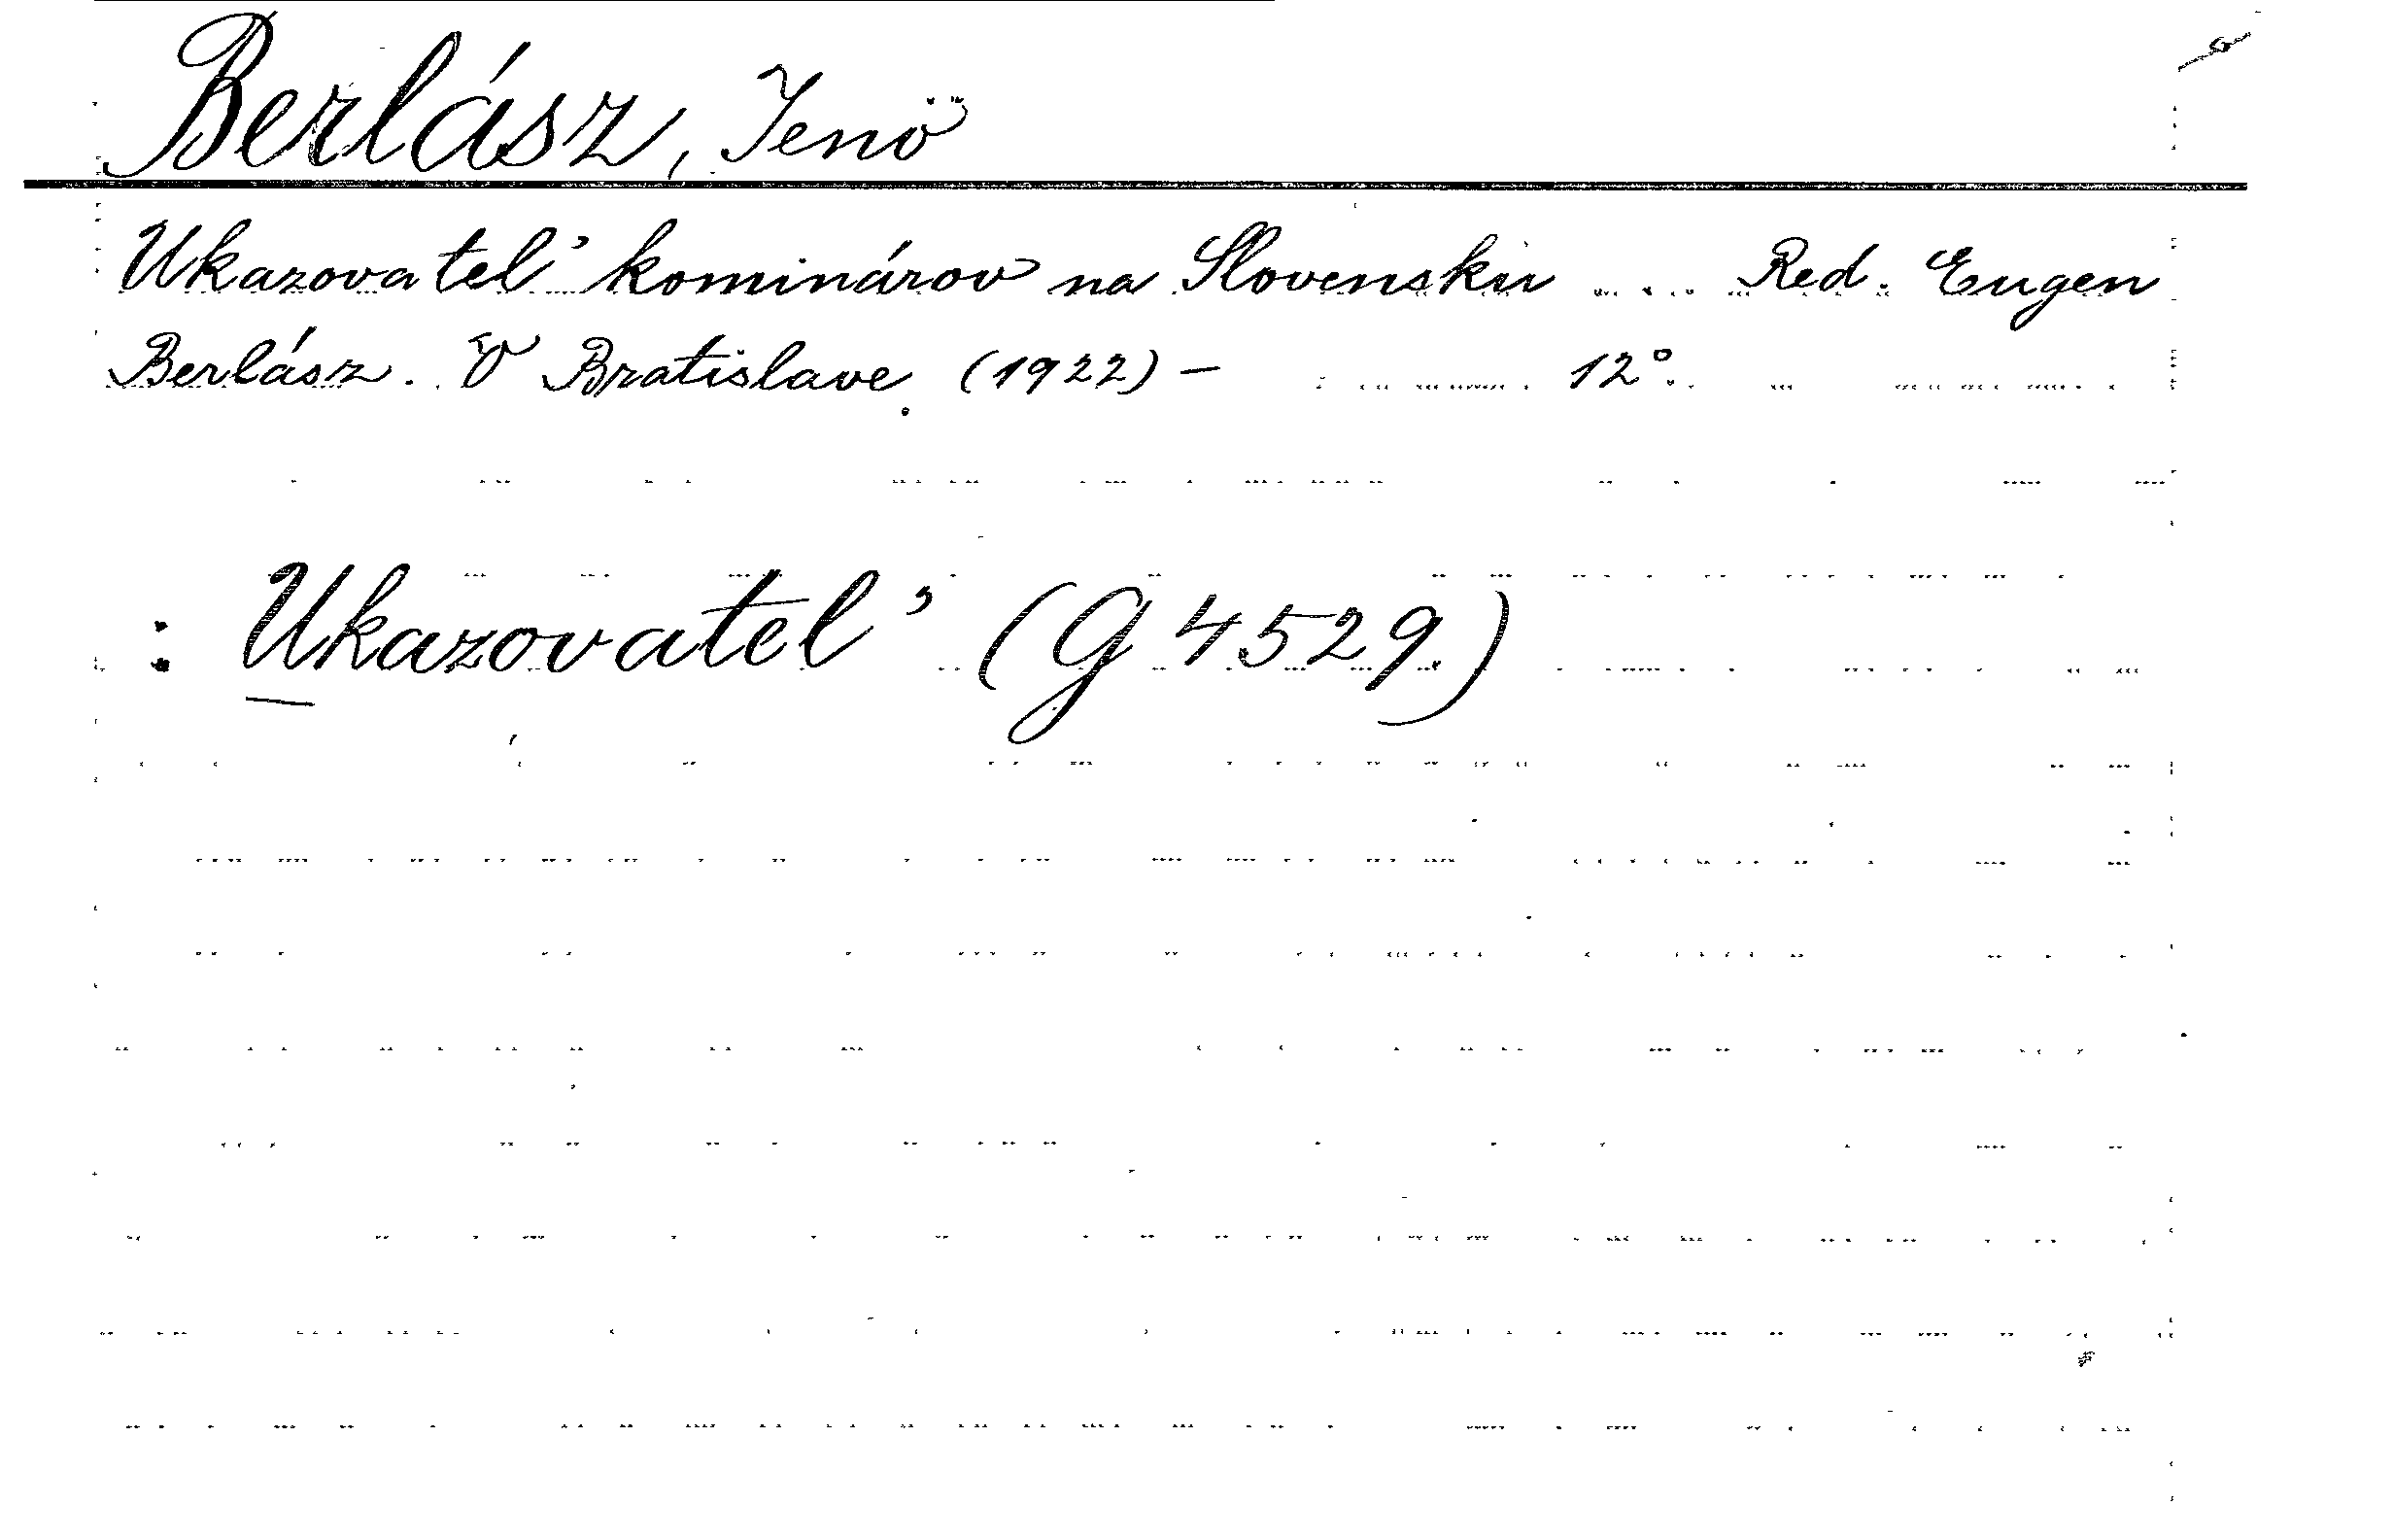 Berlász, Jenö
Ukazovatel' kominárov na Slovensku .... Red. Eugen
Berlász. V Bratislave, (1922) – 12°.
: Ukazovatel' (G 4529.)